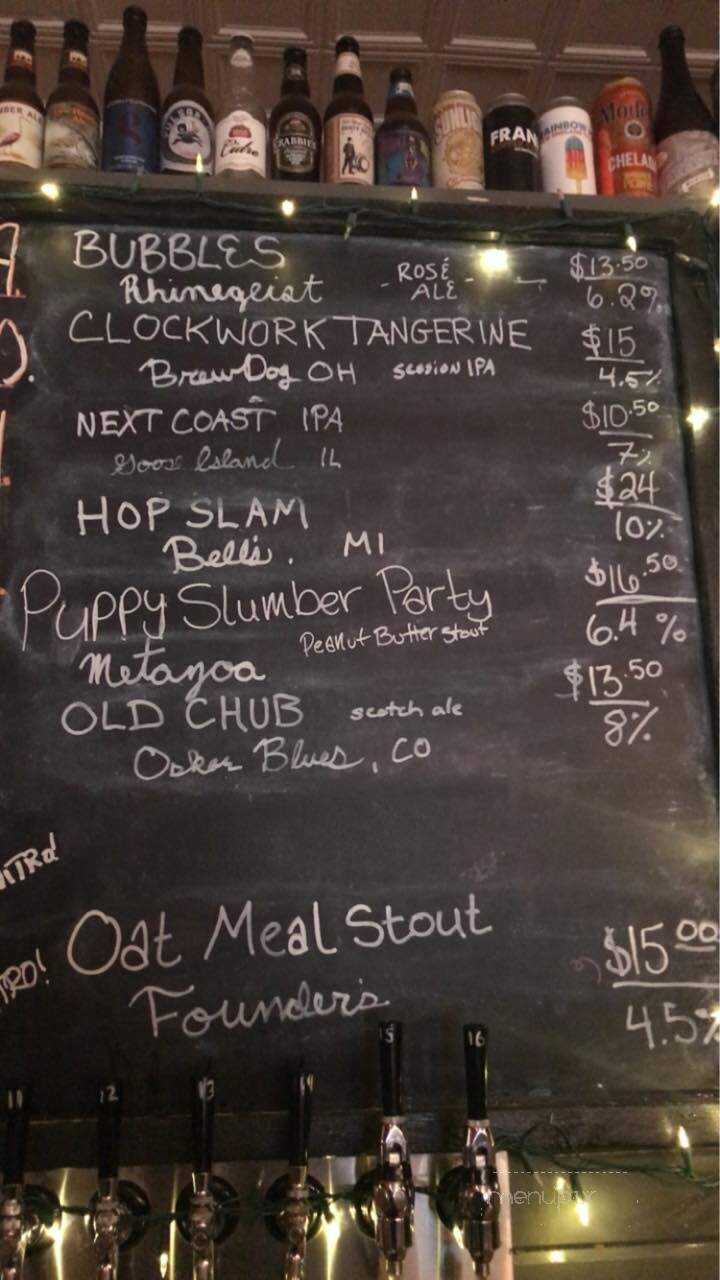 BER ALE
Cidre
CRABBIE'S
SUNLIG
FRAN
AINBOW
Mode
CHELAD
BUBBLES $13.50
Rhinegeist - ROSÉ ALE - 6.2%
CLOCKWORK TANGERINE $15
BrewDog OH SESSION IPA 4.5%
NEXT COAST IPA $10.50
Goose Island IL 7%
HOP SLAM $24
Bell's. MI 10%
Puppy Slumber Party $16.50
Peanut Butter Stout 6.4%
Metazoa
OLD CHUB scotch ale $13.50
Oskar Blues, CO 8%
NITRO
Oat Meal Stout $15.00
TRO!
Founder's 4.5%
15 16
11 12 13 14
menupix